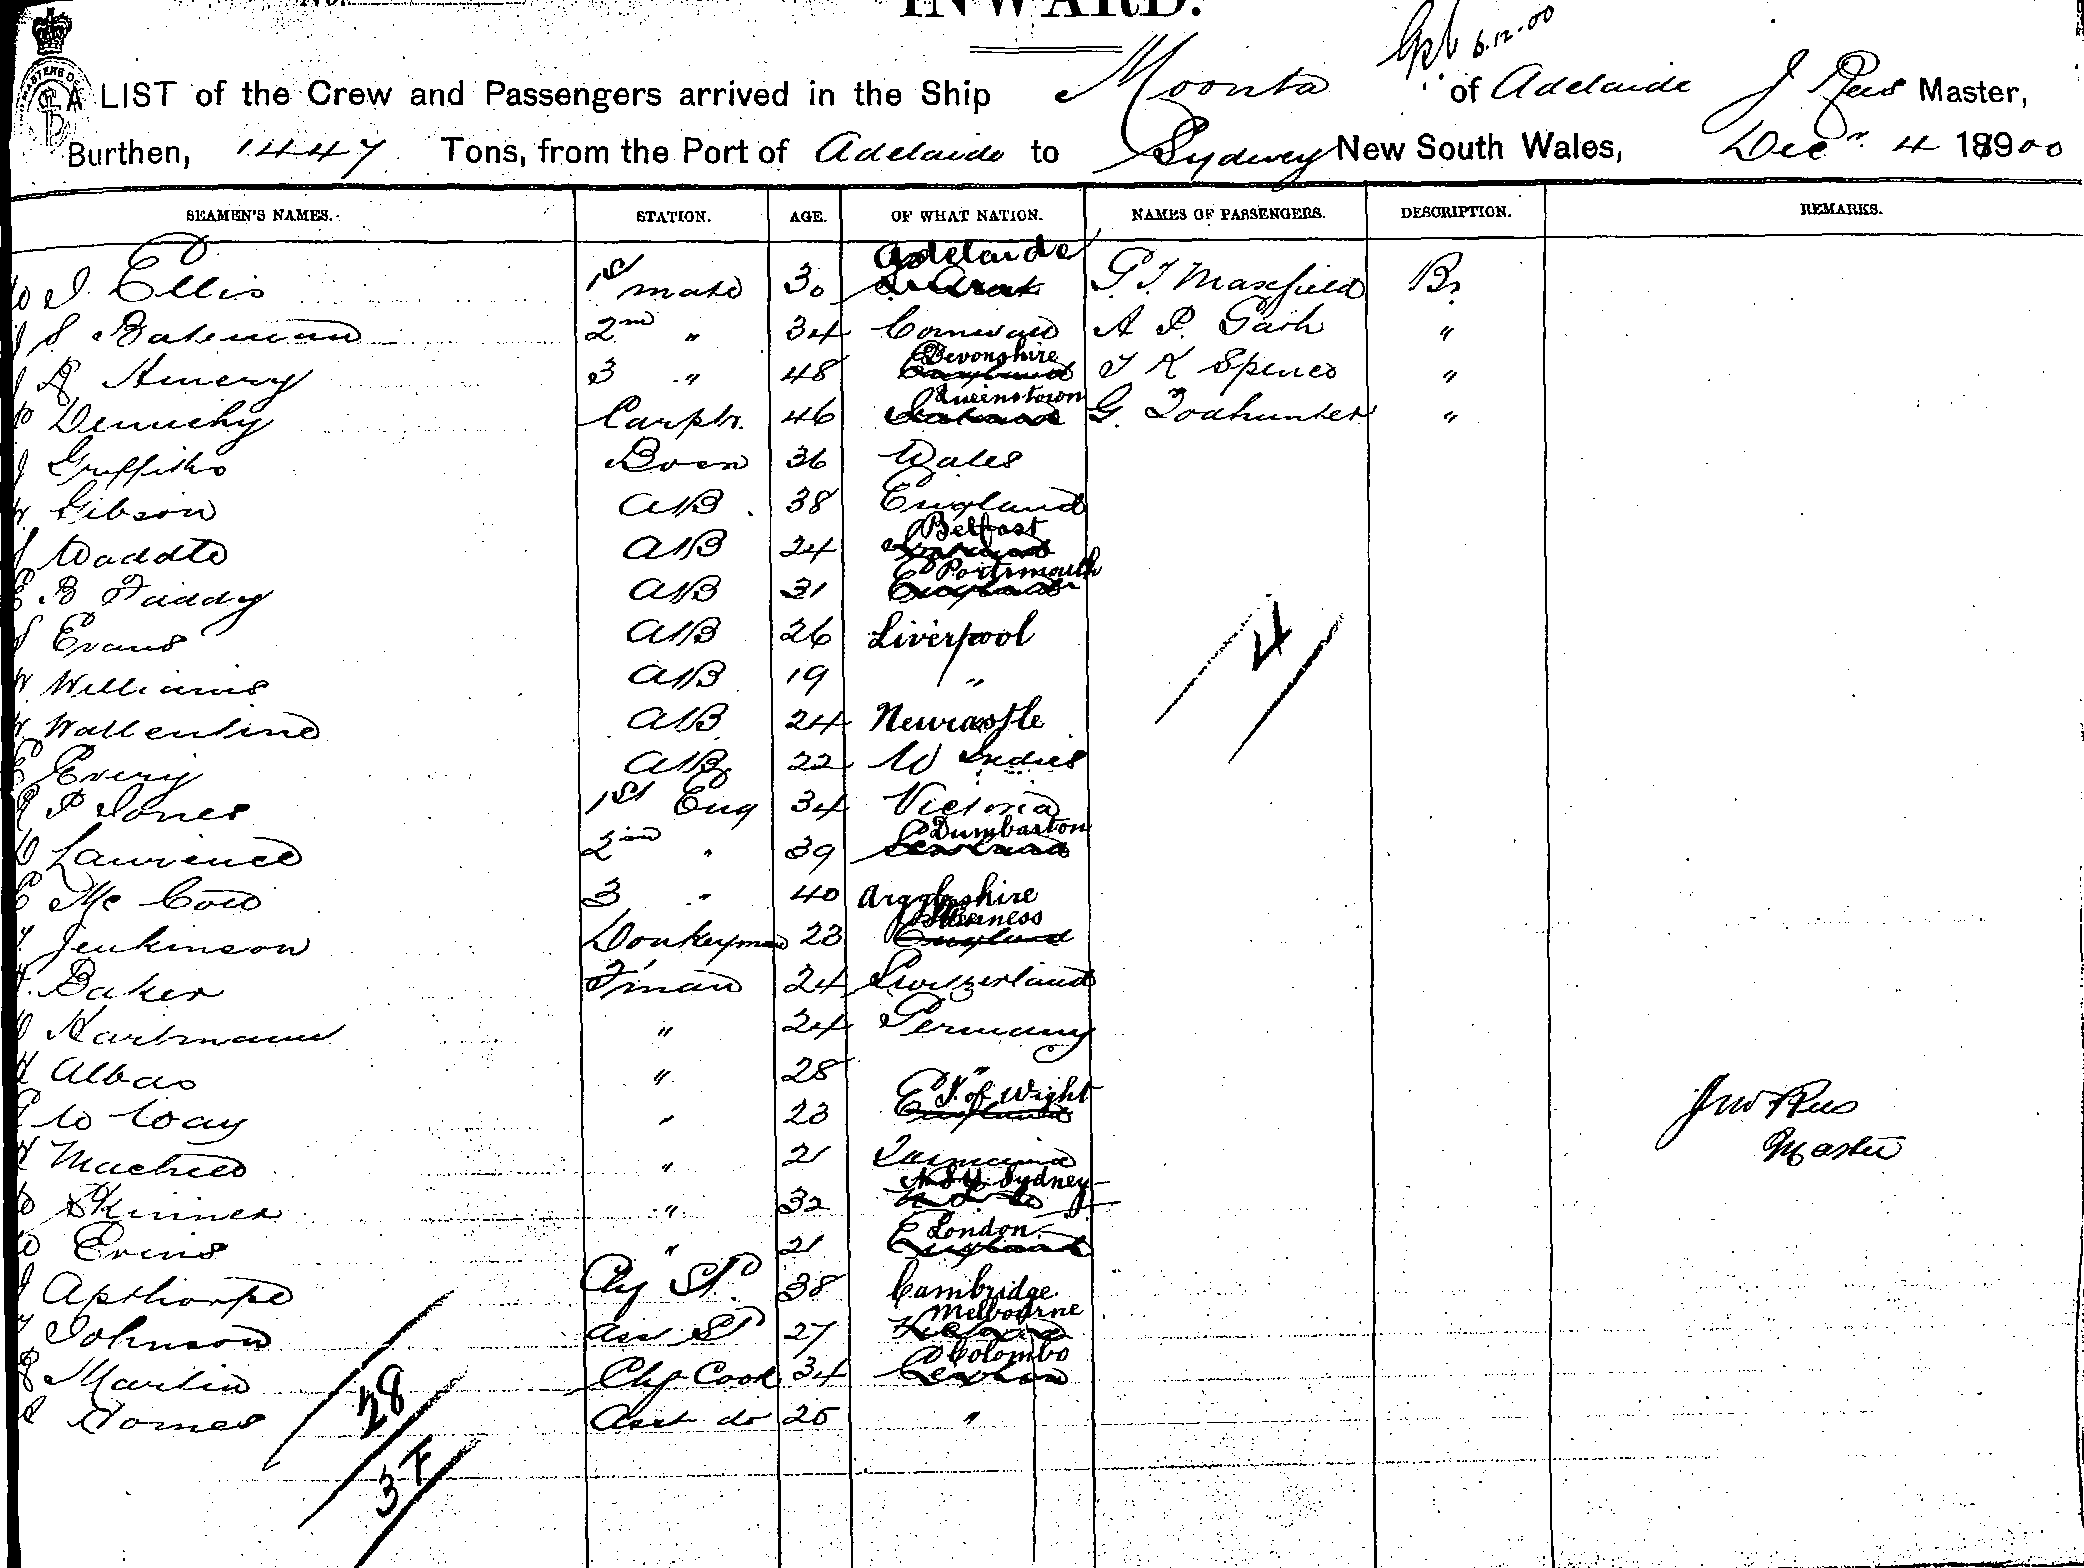 INWARD.
6.12.00
A LIST of the Crew and Passengers arrived in the Ship Moonta of Adelaide J Rees Master,
Burthen, 1447 Tons, from the Port of Adelaide to Sydney New South Wales, Decr. 4 18900
SEAMEN'S NAMES. STATION. AGE. OF WHAT NATION. NAMES OF PASSENGERS. DESCRIPTION. REMARKS.
Adelaide
J. Ellis 1st mate 30 G. T. Maxfield Br
S Bateman 2nd " 34 Cornwall A P. Gash "
Devonshire
J R Amery 3 " 48 England T K Spence "
Queenstown
Dennehy Carptr. 46 Ireland G. Todhunter "
J Griffiths Bosn 36 Wales
W. Gibson AB 38 England
Belfast
J Waddle AB 24 Ireland
Portsmouth
E B Faddy AB 31 England
S Evans AB 26 Liverpool
W Williams AB 19 "
W Wallentine AB 24 Newcastle
E Every AB 22 W Indies
R P Jones 1st Eng 34 Victoria
Dumbarton
Laurence 2nd " 39 Scotland
Mc Coll 3 " 40 Argyleshire
Jenkinson Donkeyman 23 England
Baker F'man 24 Switzerland
Hartmann " 24 Germany
H Albas " 28 "
I. of Wight
W Way " 23 England
H Machell " 21 Tasmania
N.S.W. Sydney
Skinner " 32 N S W
London
Evins " 21 England
J Apthorpe Chf Std 38 Cambridge
Melbourne
Johnson Ass St 27 Victoria
Colombo
Martin Chf Cook 34 Ceylon
Homes Asst do 25 "
4
28
Jno Rees
Master